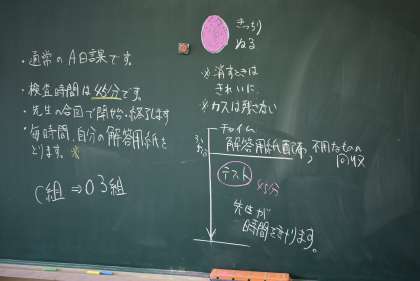 ・通常のA日課です。
・検査時間は45分です。
・先生の合図で開始・終了します
・毎時間、自分の解答用紙を
とります。※
C組⇒03組
きっちり
ぬる
※消すときは
きれいに。
※カスは残さない
チャイム
解答用紙、不用なもの
回収
テスト
45分
先生が
時間を計ります。